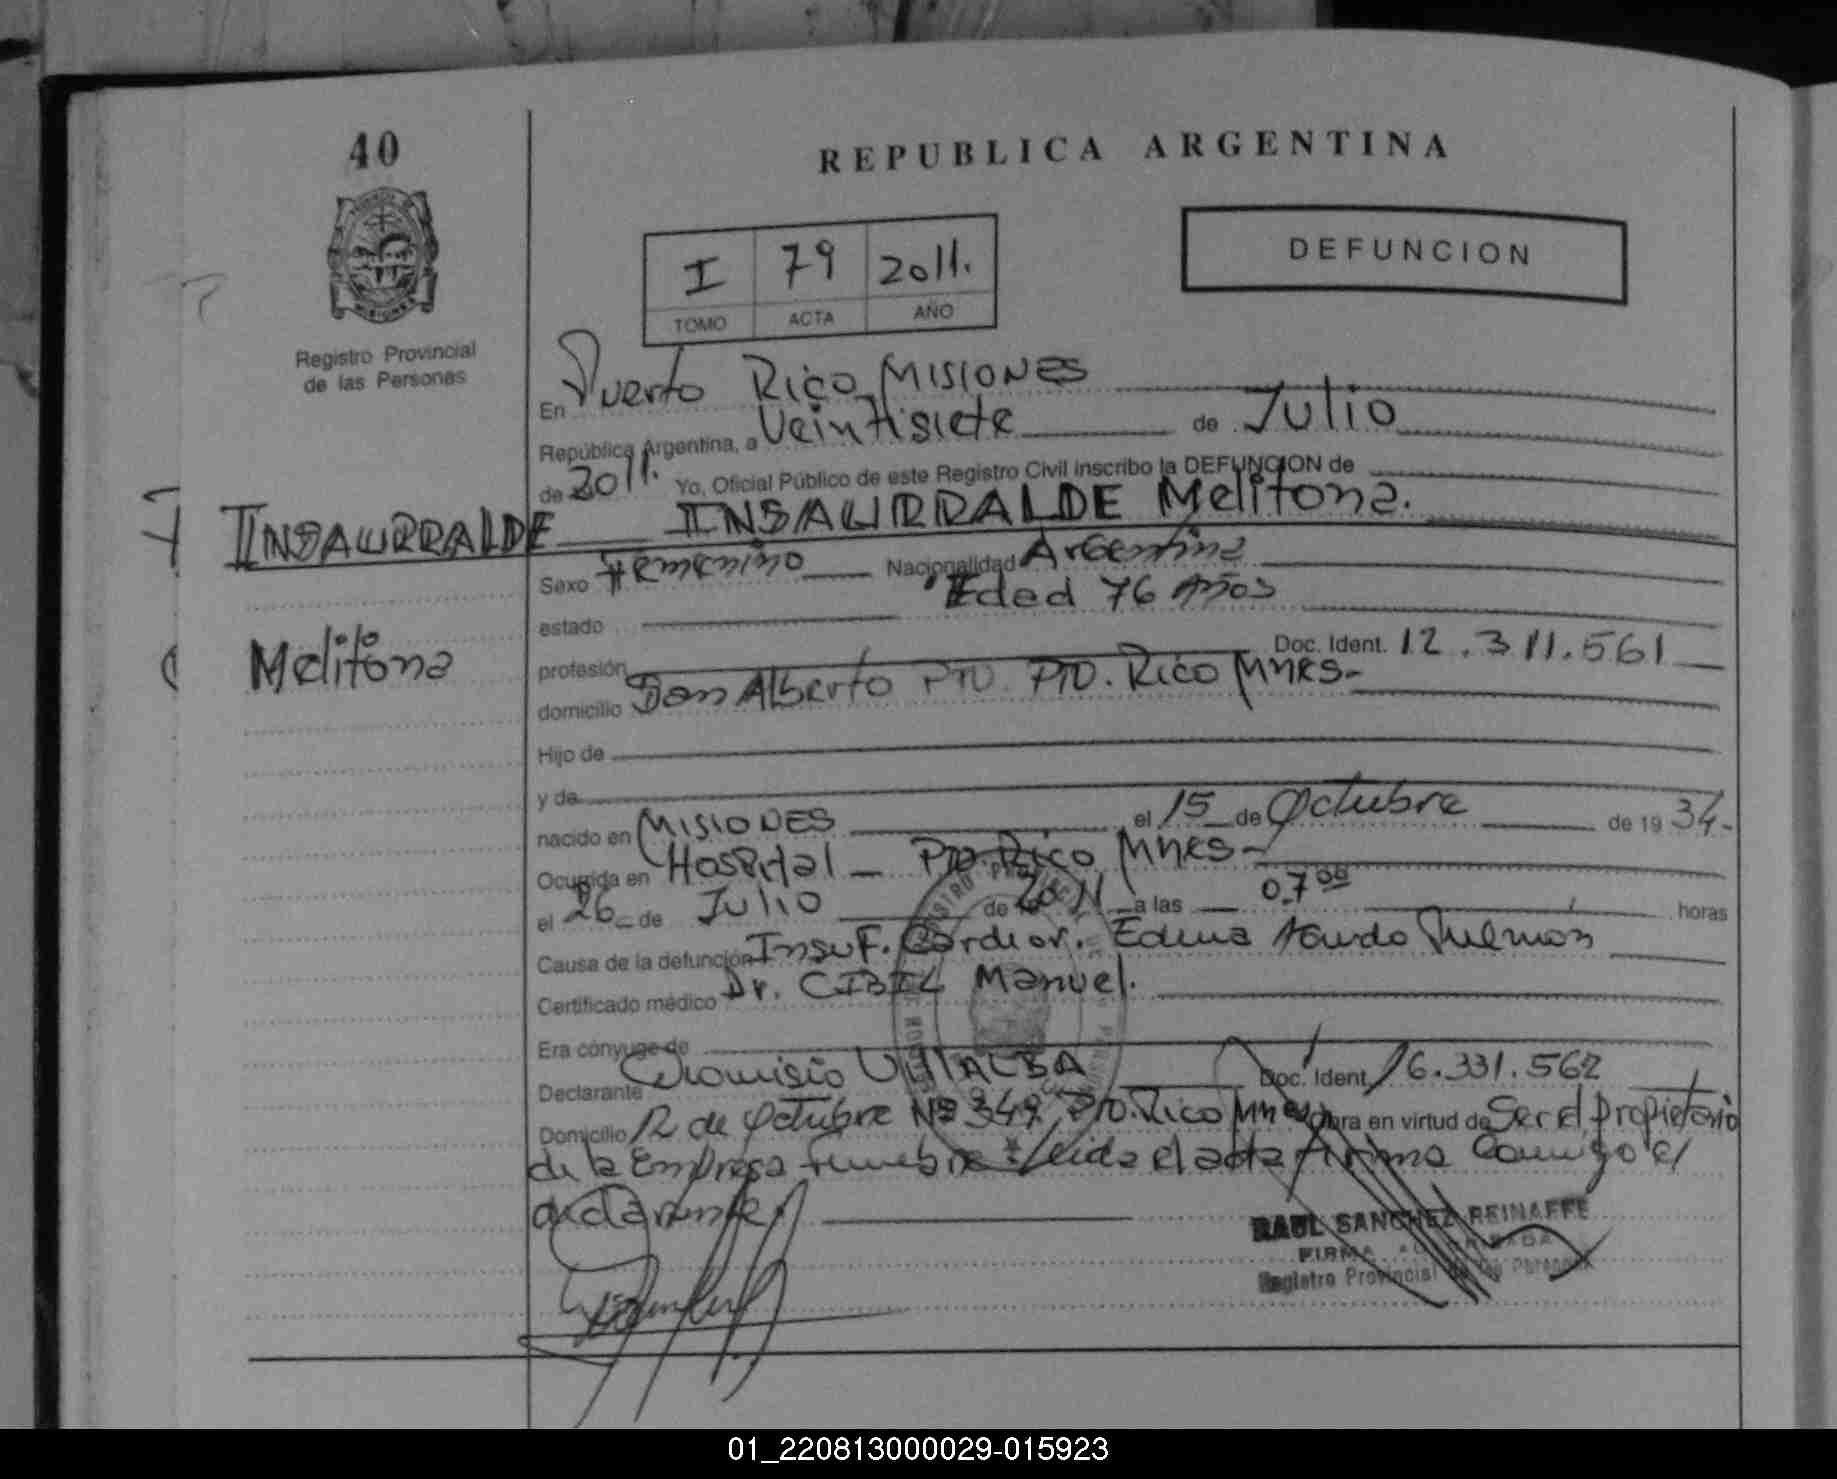 40
REPUBLICA ARGENTINA
DEFUNCION
I 79 2011.
TOMO ACTA AÑO
Registro Provincial
de las Personas
En Puerto Rico, MISIONES
República Argentina, a Veintisiete de Julio
de 2011. Yo, Oficial Público de este Registro Civil inscribo la DEFUNCION de
INSAURRALDE INSAURRALDE Melitona.
Sexo Femenino Nacionalidad Argentina
estado Edad 76 Años
Melitona
profesión Doc. Ident. 12.311.561
domicilio Don Alberto Pto. Pto. Rico Mnes-
Hijo de
y de
nacido en MISIONES el 15 de Octubre de 19 34-
Ocurrida en Hospital - Pto. Rico Mnes-
el 26 de Julio de 2011 a las 07⁰⁰ horas
Causa de la defunción Insuf. Cardior. Edema Agudo Pulmón
Certificado médico Dr. CIBIL Manuel.
Era cónyuge de
Declarante Dionisio VILLALBA Doc. Ident. 16.331.562
Domicilio 12 de Octubre Nº 349 Pto. Rico Mnes Obra en virtud de Ser el Propietario
de la Empresa Funebre Leida el acta Firma Conmigo el
declarante
RAUL SANCHEZ REINAFFE
FIRMA AUTORIZADA
Registro Provincial de las Personas
01_220813000029-015923